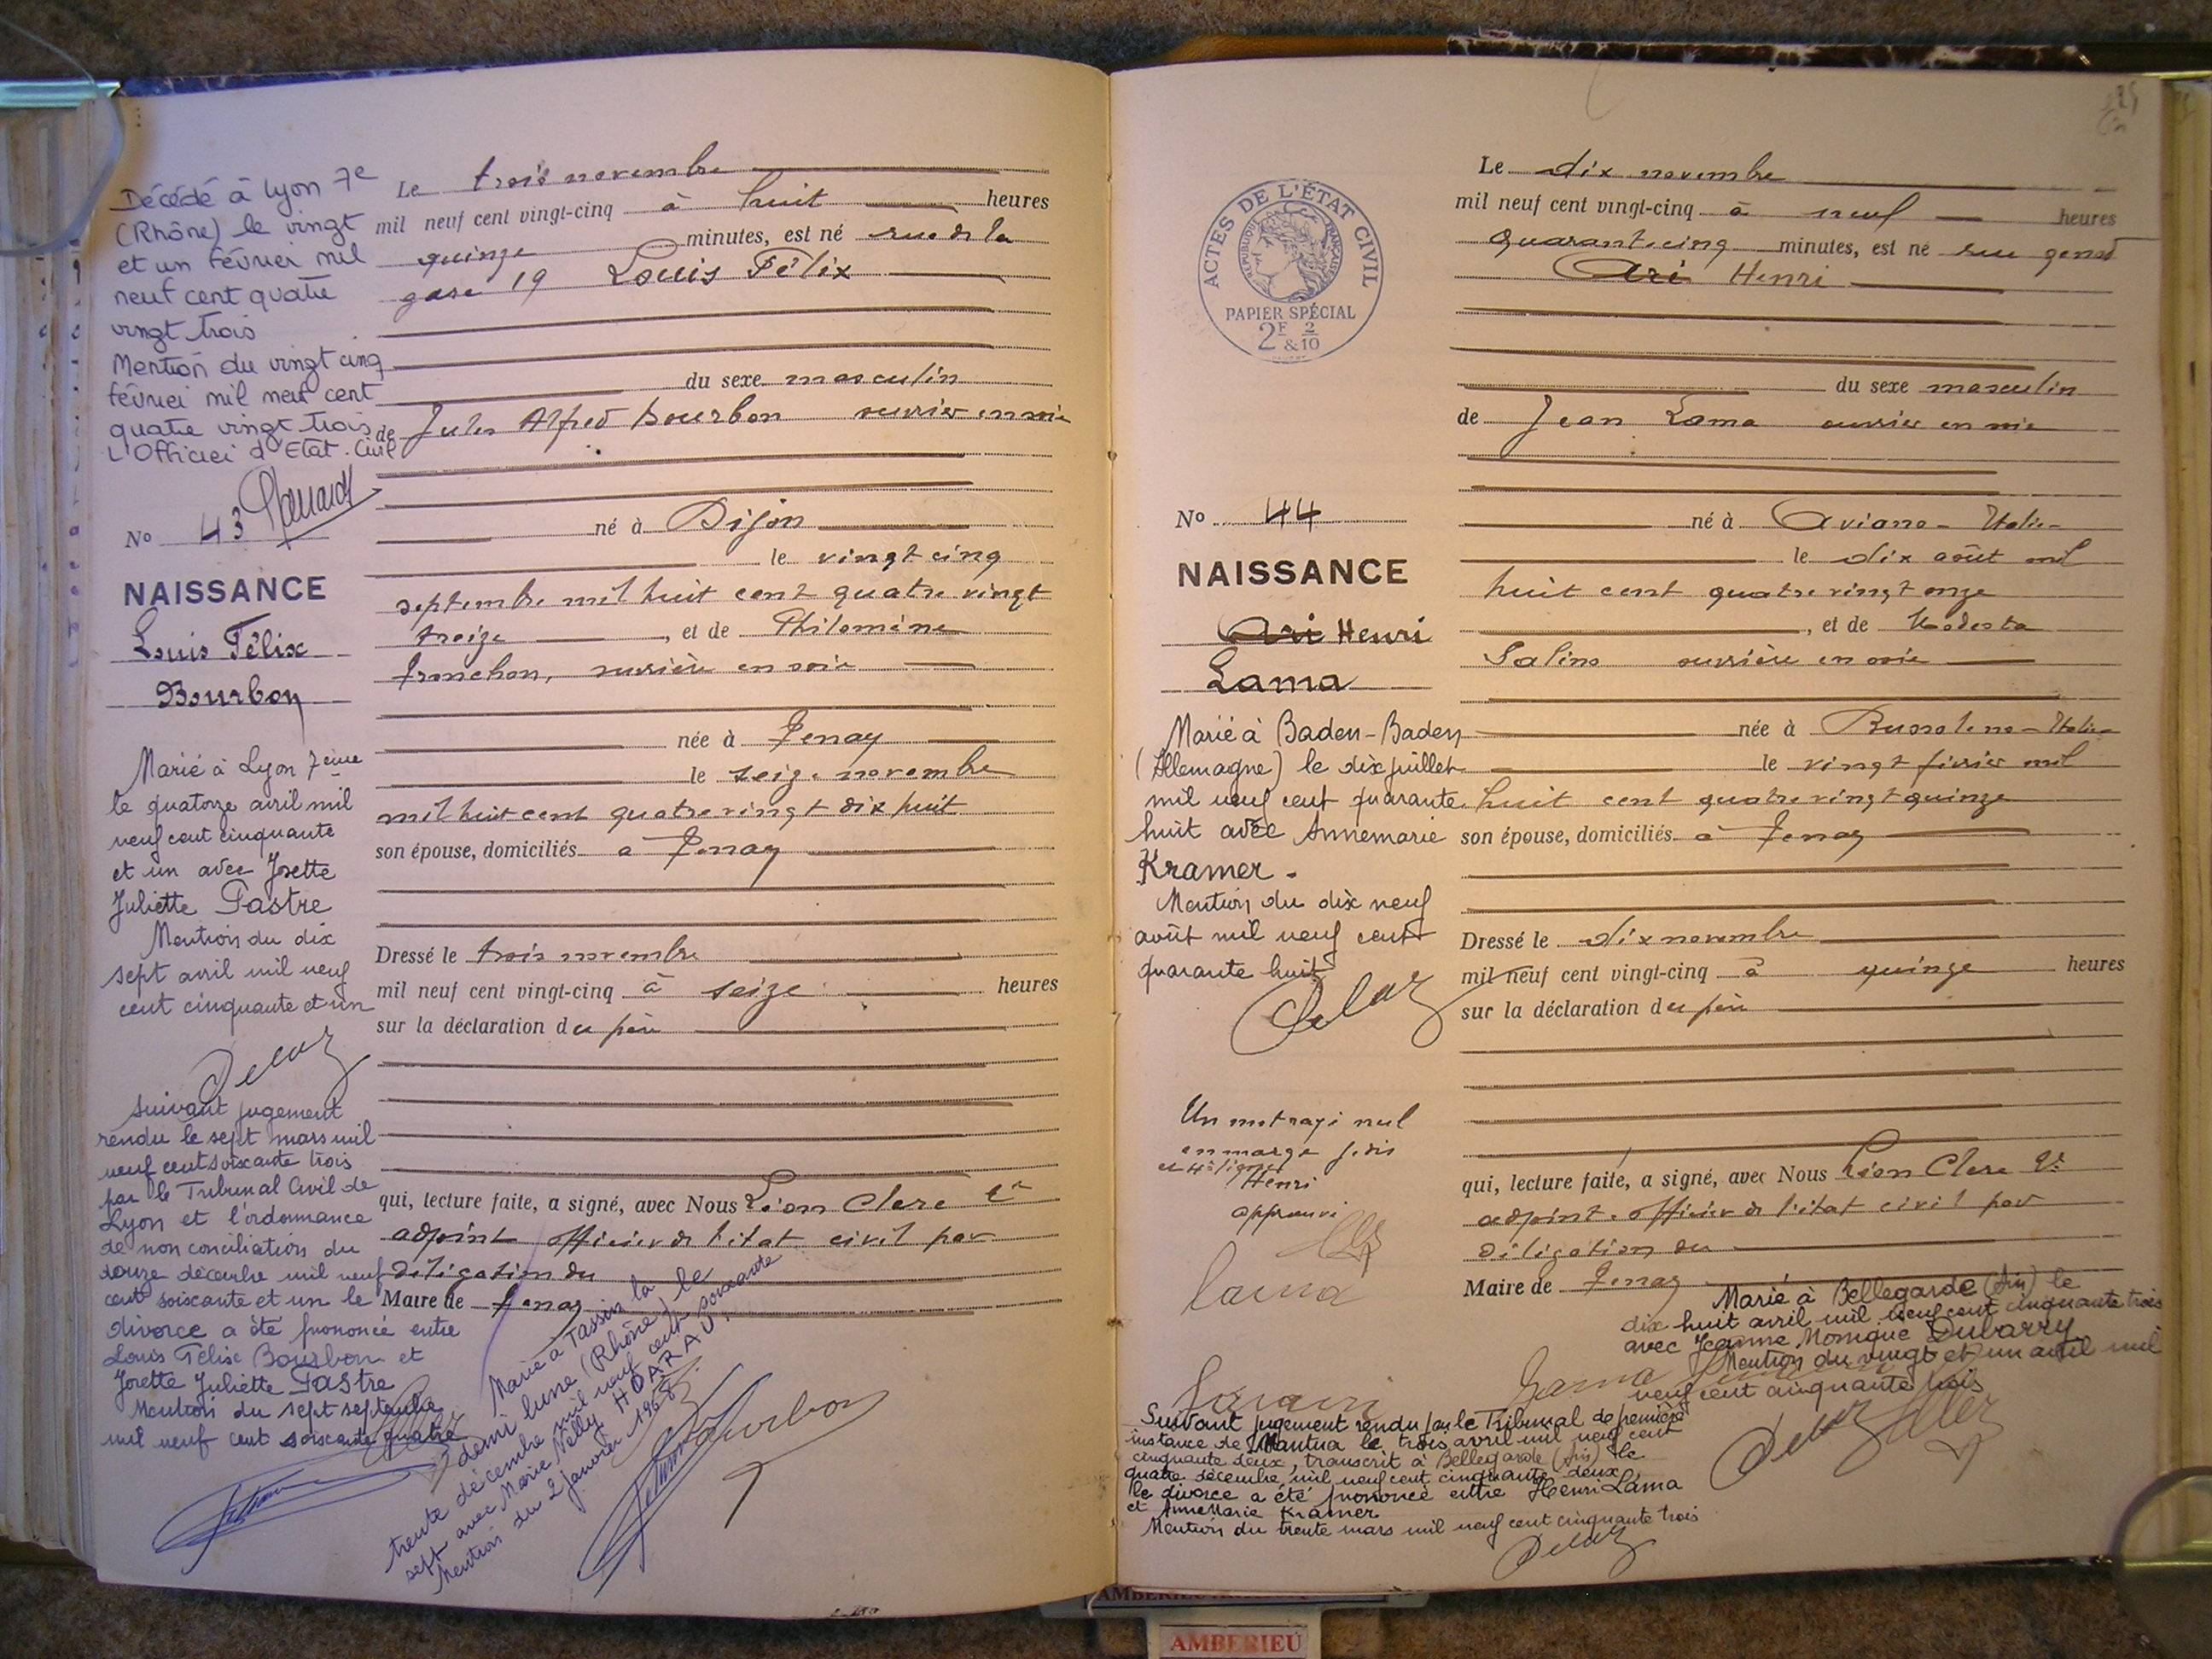 Décédé à Lyon 7e
(Rhône) le vingt
et un février mil
neuf cent quatre
vingt trois
Mention du vingt cinq
février mil neuf cent
quatre vingt trois
L'Officier d'Etat.Civil
No 43
NAISSANCE
Louis Félix
Bourbon
Marié à Lyon 7ème
le quatorze avril mil
neuf cent cinquante
et un avec Josette
Juliette Pastre
Mention du dix
sept avril mil neuf
cent cinquante et un
Delaz
Suivant jugement
rendu le sept mars mil
neuf cent soixante trois
par le Tribunal Civil de
Lyon et l'ordonnance
de non conciliation du
douze décembre mil neuf
cent soixante et un le
divorce a été prononcé entre
Louis Félix Bourbon et
Josette Juliette Pastre
Mention du sept septembre
mil neuf cent soixante quatre
Le trois novembre
mil neuf cent vingt-cinq à huit heures
quinze minutes, est né rue de la
gare 19 Louis Félix
du sexe masculin
de Jules Alfred Bourbon ouvrier en soie
né à Dijon
le vingt cinq
septembre mil huit cent quatre vingt
treize, et de Philomène
Tronchon, ouvrière en soie
née à Tenay
le seize novembre
mil huit cent quatre vingt dix huit
son épouse, domiciliés à Tenay
Dressé le trois novembre
mil neuf cent vingt-cinq à seize heures
sur la déclaration du père
qui, lecture faite, a signé, avec Nous Léon Clerc 1er
adjoint officier de l'état civil par
délégation du
Maire de Tenay
Marié à Tassin la
demi lune (Rhône) le
trente décembre mil neuf cent soixante
sept avec Marie Nelly HOARAU.
Mention du 2 janvier 1968.
Bourbon
ACTES DE L'ÉTAT CIVIL
RÉPUBLIQUE FRANÇAISE
PAPIER SPÉCIAL
2F & 2/10
No 44
NAISSANCE
Ari Henri
Lama
Marié à Baden-Baden
(Allemagne) le dix juillet
mil neuf cent quarante
huit avec Annemarie
Kramer.
Mention du dix neuf
août mil neuf cent
quarante huit
Delaz
Un mot rayé nul
en marge
et 4è ligne
Henri
approuvé
Lama
Le dix novembre
mil neuf cent vingt-cinq à neuf heures
quarante cinq minutes, est né rue
Ari Henri
du sexe masculin
de Jean Lama ouvrier en soie
né à Aviano - Italie
le dix août mil
huit cent quatre vingt onze
, et de Modesta
Salino ouvrière en soie
née à Bussoleno - Italie
le vingt février mil
huit cent quatre vingt quinze
son épouse, domiciliés à Tenay
Dressé le dix novembre
mil neuf cent vingt-cinq à quinze heures
sur la déclaration du père
qui, lecture faite, a signé, avec Nous Léon Clerc
adjoint officier de l'état civil par
délégation du
Maire de Tenay
Marié à Bellegarde (Ain) le
dix huit avril mil neuf cent cinquante trois
avec Jeanne Monique Dubarry
Mention du vingt et un avril mil
neuf cent cinquante trois
Delaz
Lama
Suivant jugement rendu par le Tribunal de première
instance de Nantua le trois avril mil neuf cent
cinquante deux, transcrit à Bellegarde (Ain) le
quatre décembre mil neuf cent cinquante deux,
le divorce a été prononcé entre Henri Lama
et AnneMarie Kramer
Mention du trente mars mil neuf cent cinquante trois
Delaz
AMBERIEU